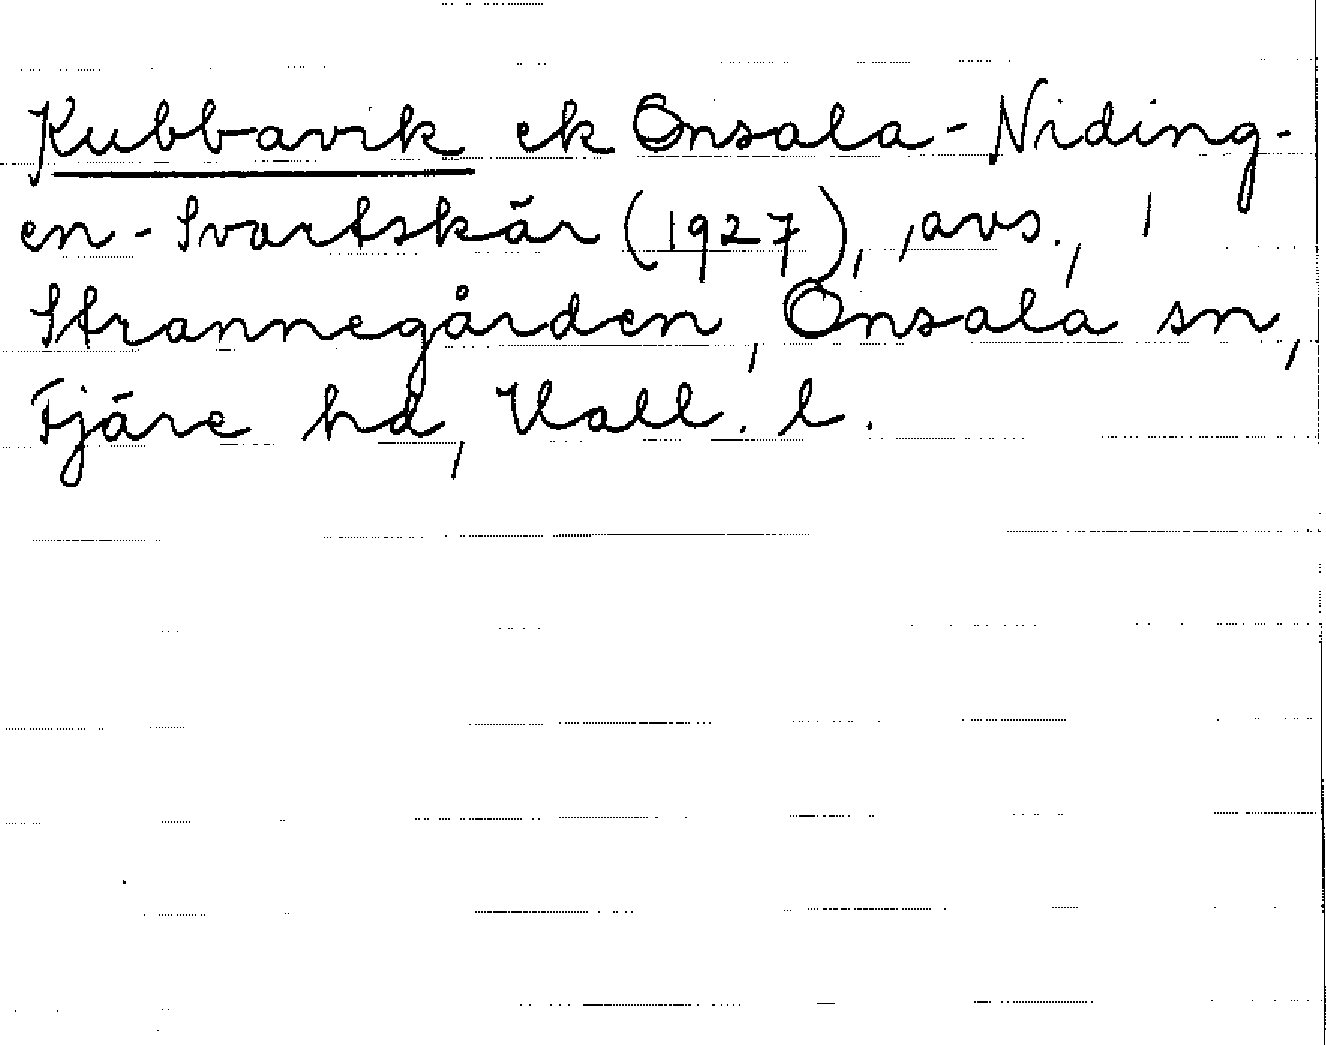 Kubbavik ek Onsala-Niding-
en-Svartskär (1927), avs. i
Strannegården, Onsala sn,
Fjäre hd, Hall. l.